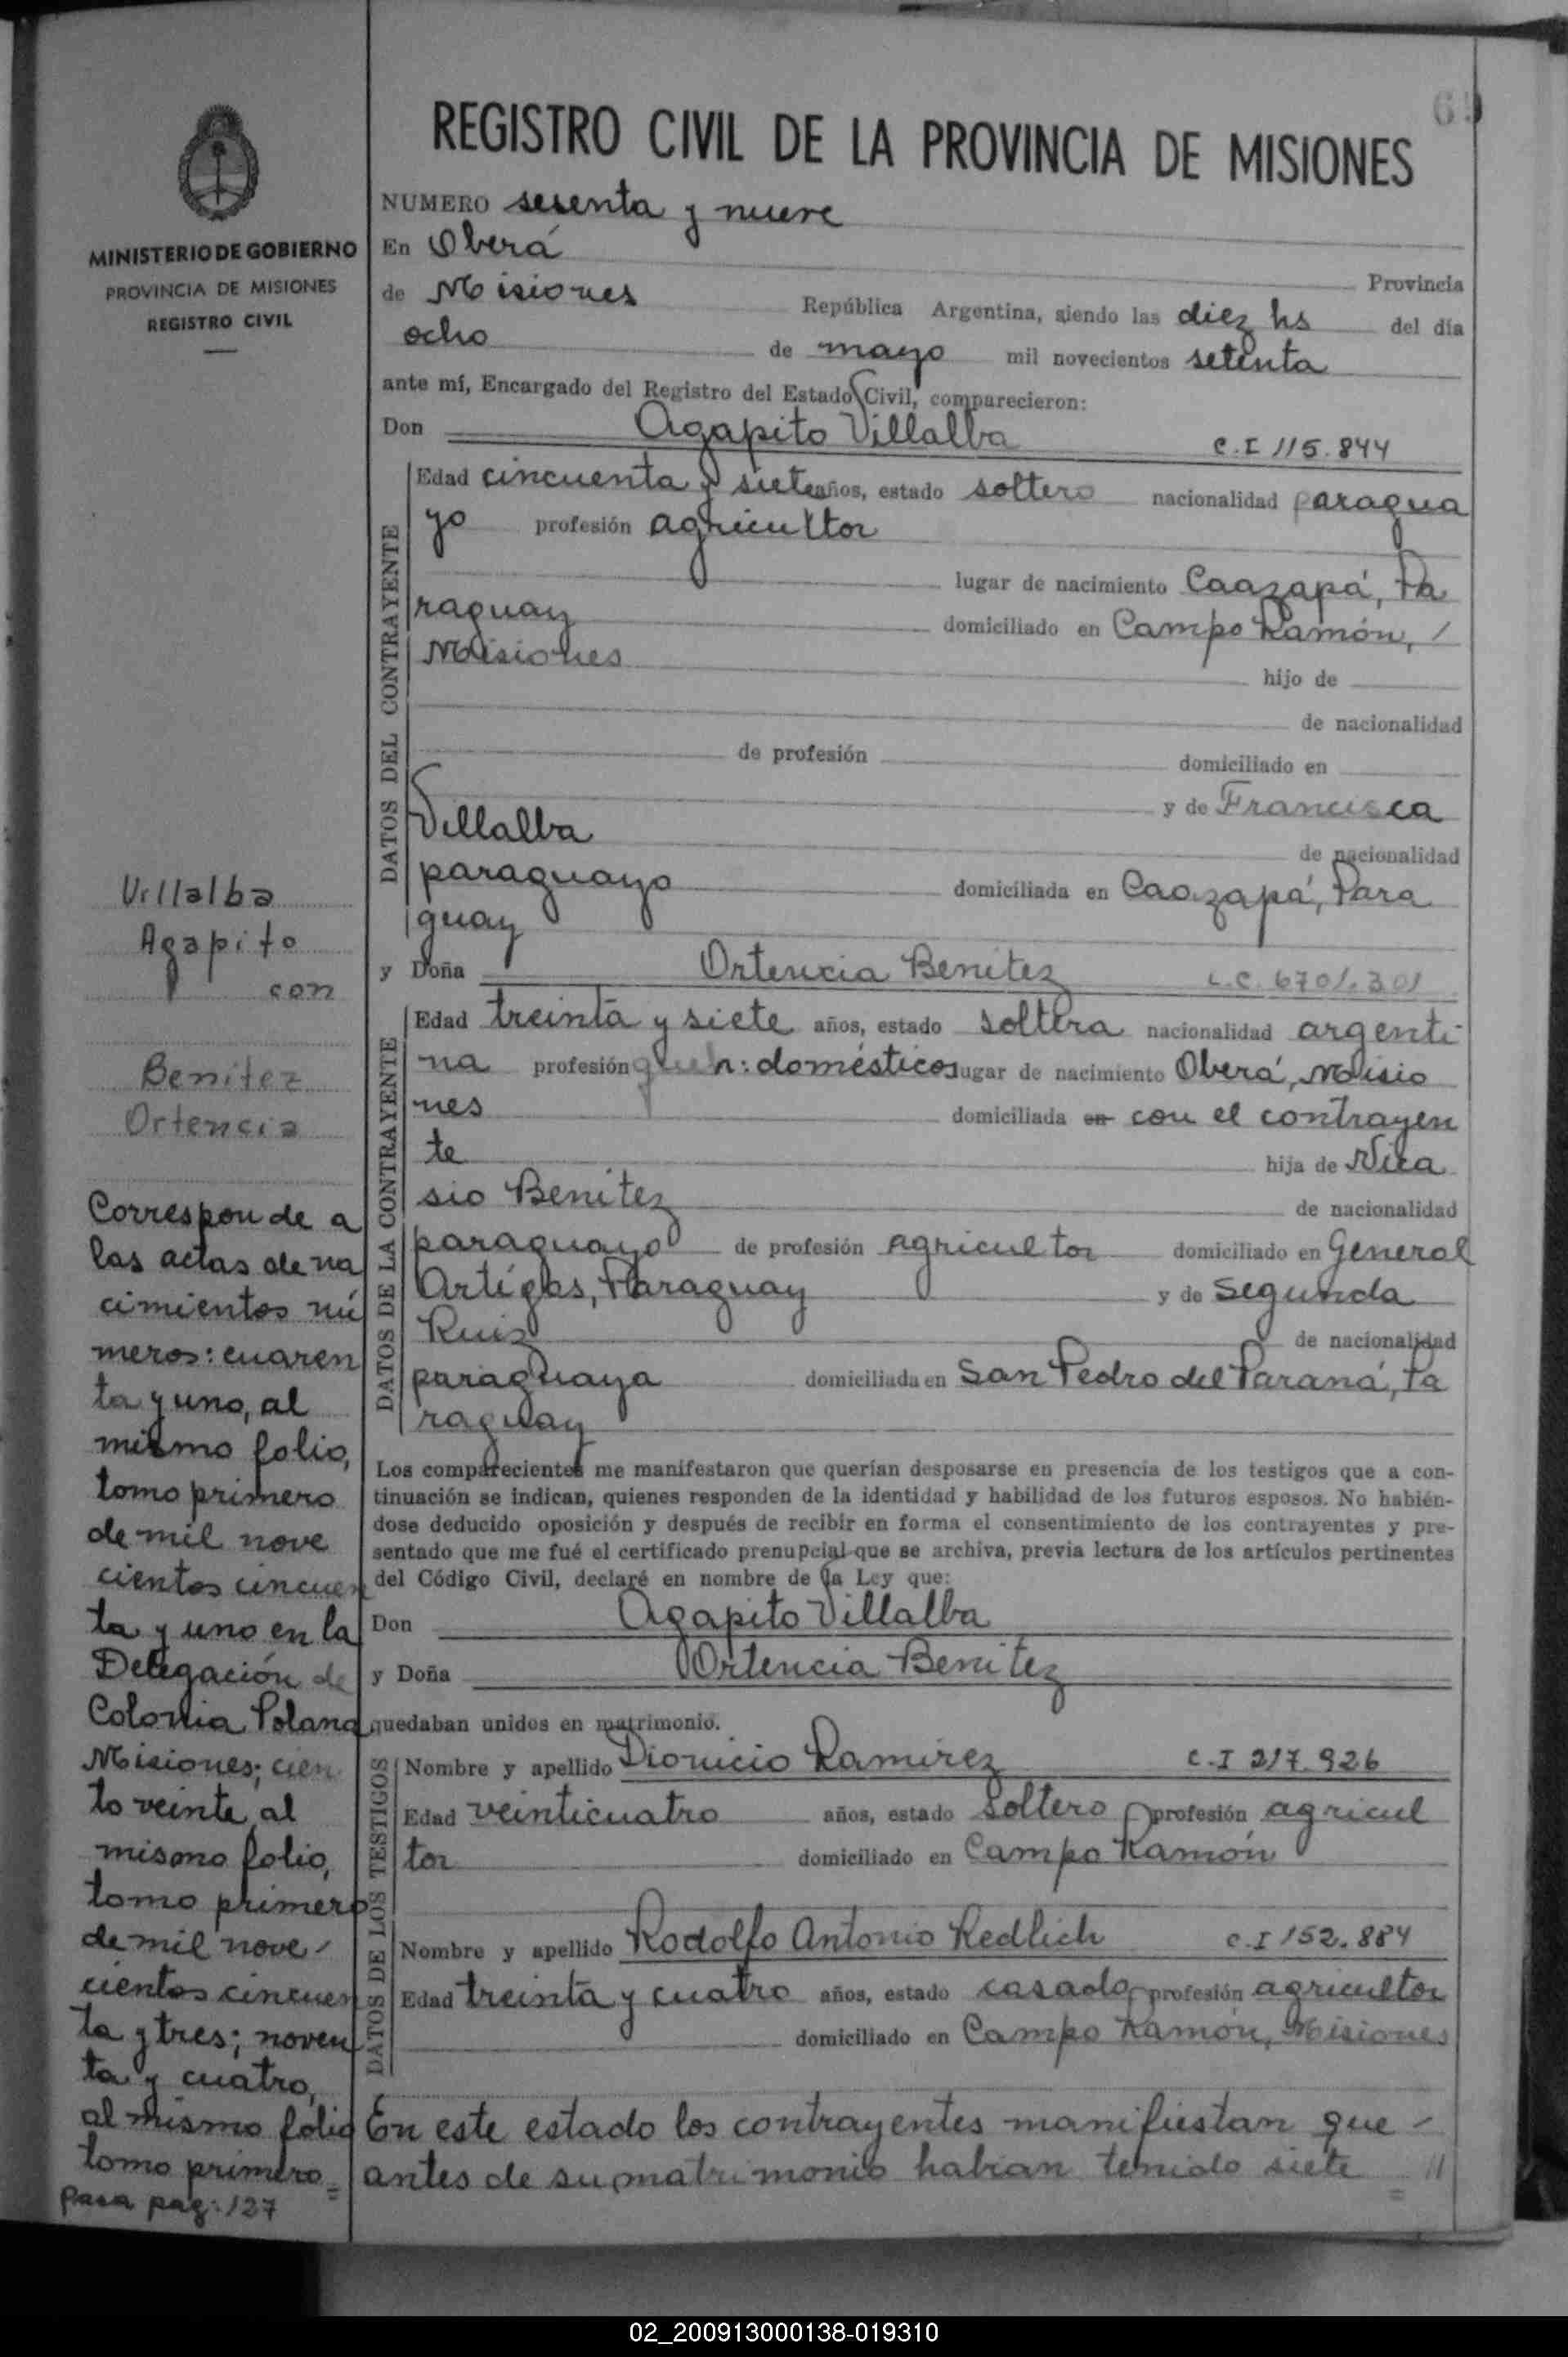 69
REGISTRO CIVIL DE LA PROVINCIA DE MISIONES
MINISTERIO DE GOBIERNO
PROVINCIA DE MISIONES
REGISTRO CIVIL
NUMERO sesenta y nueve
En Oberá Provincia
de Misiones República Argentina, siendo las diez hs del día
ocho de mayo mil novecientos setenta
ante mí, Encargado del Registro del Estado Civil, comparecieron:
Don Agapito Villalba C.I 115.844
DATOS DEL CONTRAYENTE
Edad cincuenta y siete años, estado soltero nacionalidad paragua
yo profesión agricultor
lugar de nacimiento Caazapá, Pa
raguay domiciliado en Campo Ramón, /
Misiones hijo de
de nacionalidad
de profesión domiciliado en
y de Francisca
Villalba de nacionalidad
paraguayo domiciliada en Caazapá, Para
guay
y Doña Ortencia Benitez L.C. 6701.301
DATOS DE LA CONTRAYENTE
Edad treinta y siete años, estado soltera nacionalidad argenti-
na profesión queh: domésticos lugar de nacimiento Oberá, Misio
nes domiciliada en con el contrayen
te hija de Nica
sio Benitez de nacionalidad
paraguayo de profesión agricultor domiciliado en General
Artigas, Paraguay y de Segunda
Ruiz de nacionalidad
paraguaya domiciliada en San Pedro del Paraná, Pa
raguay
Los comparecientes me manifestaron que querían desposarse en presencia de los testigos que a con-
tinuación se indican, quienes responden de la identidad y habilidad de los futuros esposos. No habién-
dose deducido oposición y después de recibir en forma el consentimiento de los contrayentes y pre-
sentado que me fué el certificado prenupcial que se archiva, previa lectura de los artículos pertinentes
del Código Civil, declaré en nombre de la Ley que:
Don Agapito Villalba
y Doña Ortencia Benitez
quedaban unidos en matrimonio.
DATOS DE LOS TESTIGOS
Nombre y apellido Dionicio Ramirez C.I 217.926
Edad veinticuatro años, estado soltero profesión agricul
tor domiciliado en Campo Ramón
Nombre y apellido Rodolfo Antonio Redlich C.I 152.884
Edad treinta y cuatro años, estado casado profesión agricultor
domiciliado en Campo Ramón, Misiones
En este estado los contrayentes manifiestan que -
antes de su matrimonio habian tenido siete = //
Villalba
Agapito
con
Benitez
Ortencia
Corresponde a
las actas de na
cimientos nú
meros: cuaren
ta y uno, al
mismo folio,
tomo primero
de mil nove
cientos cincuen
ta y uno en la
Delegación de
Colonia Polana
Misiones; cien
to veinte, al
mismo folio,
tomo primero
de mil nove/
cientos cincuen
ta y tres; noven
ta y cuatro,
al mismo folio
tomo primero =
Pasa pag: 127
02_200913000138-019310